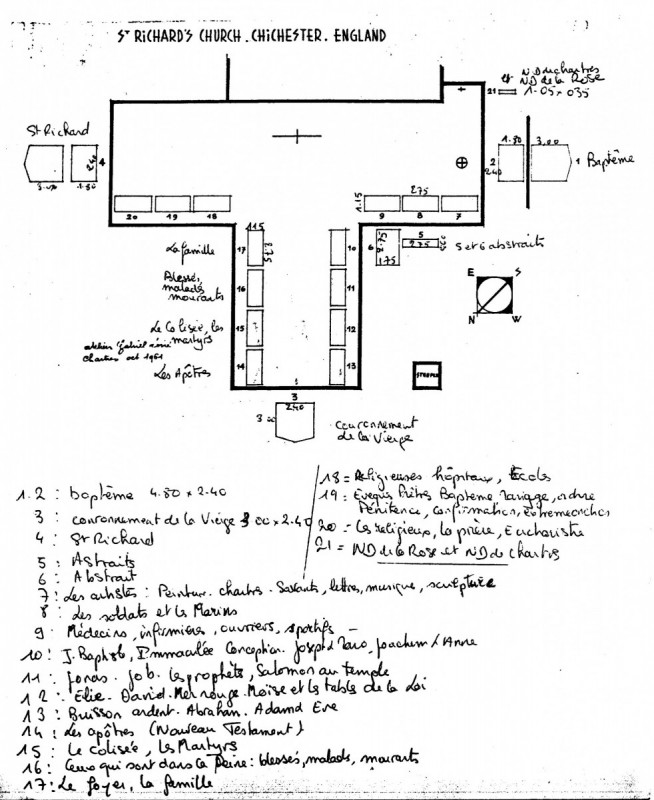 ST RICHARD'S CHURCH. CHICHESTER. ENGLAND
et ND de Chartres
ND de la Rose
21 1.05 x 035
St Richard
4
2.40
3.00 1.80
1.80 3.00
2
2.40
1 Baptême
20 19 18
275
1.15
9 8 7
115
La famille 17 2.75
10
6 2.75
1.75
5
275
5 et 6 abstraits
Blessés,
malades
mourants
16
11
E S
N W
Le Colisée, les
martyrs
15
12
atelier Gabriel Loire
Chartres oct 1961
Les Apôtres 14
13
3
2.40
3.00
couronnement
de la Vierge
1.2 : baptême 4.80 x 2.40
3 : couronnement de la Vierge 3.00 x 2.40
4 : St Richard
5 : Astraits
6 : Abstrait
7 : Les artistes : Peinture. chartres. Savants, lettres, musique, sculpture
8 : Les soldats et les Marins
9 : Médecins, infirmières, ouvriers, sportifs -
10 : J. Baptiste, Immaculée Conception. Joseph Joachim & Anne
11 : Jonas. Job. les prophètes, Salomon au temple
12 : Elie. David. Mer rouge. Moïse et les tables de la Loi
13 : Buisson ardent. Abraham. Adam & Eve
14 : Les apôtres (Nouveau Testament)
15 : Le colisée, les Martyrs
16 : Ceux qui sont dans la Peine : blessés, malades, mourants
17 : Le foyer, la famille
18 = Religieuses hôpitaux, Ecoles
19 = Evêques Prêtres Baptême Mariage, ordre
Pénitence, confirmation, extremeonction
20 = les religieux, la prière, Eucharistie
21 = ND de la Rose et ND de Chartres